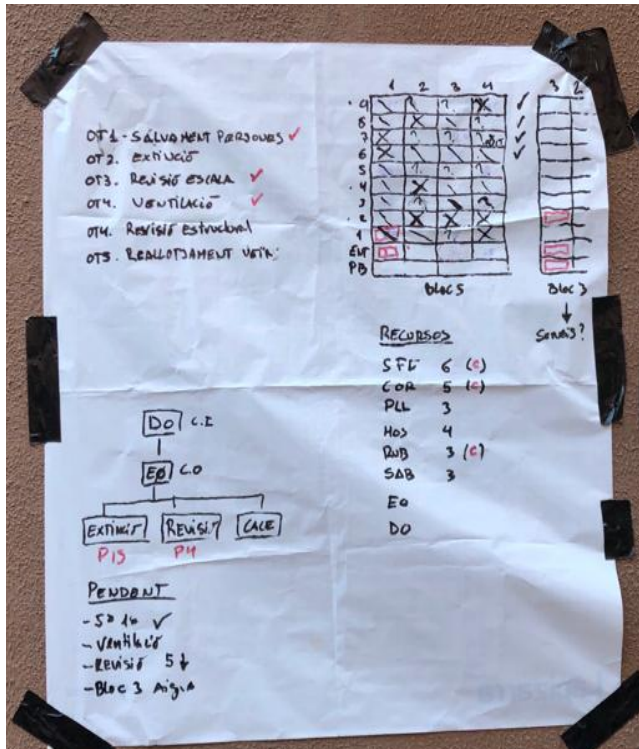 OT1 - SALVAMENT PERSONES ✓
OT2. EXTINCIÓ
OT3. REVISIÓ ESCALA ✓
OT4. VENTILACIÓ ✓
OT4. REVISIÓ ESTRUCTURAL
OT5. REALLOTJAMENT
1 2 3 4
9
8
7
6
5
4
3
2
1
ENT
PB
Bloc 5
3 2
Bloc 3
RECURSOS
SFL 6 (C)
COR 5 (C)
PLL 3
HOS 4
RUB 3 (C)
SAB 3
EO
DO
DO C.I
EØ C.O
EXTINCIÓ REVISIÓ
P13 P4
PENDENT
- 5º 1ª ✓
- Ventilació
- REVISIÓ 5 ↓
- Bloc 3 Aigua